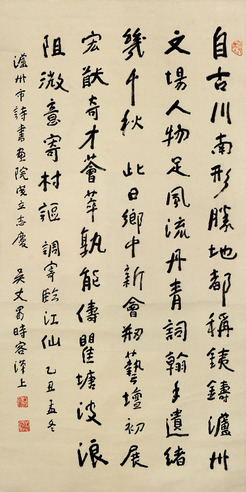 自古川南形勝地都稱鐵鑄瀘州
文場人物足風流丹青詞翰手遺緒
幾千秋 此日鄉中新會刱藝壇初展
宏猷奇才薈萃孰能儔瞿塘波浪
阻微意寄村謳 調寄臨江仙 乙丑孟冬
瀘州市詩書畫院成立志慶 吳丈蜀時客漢上